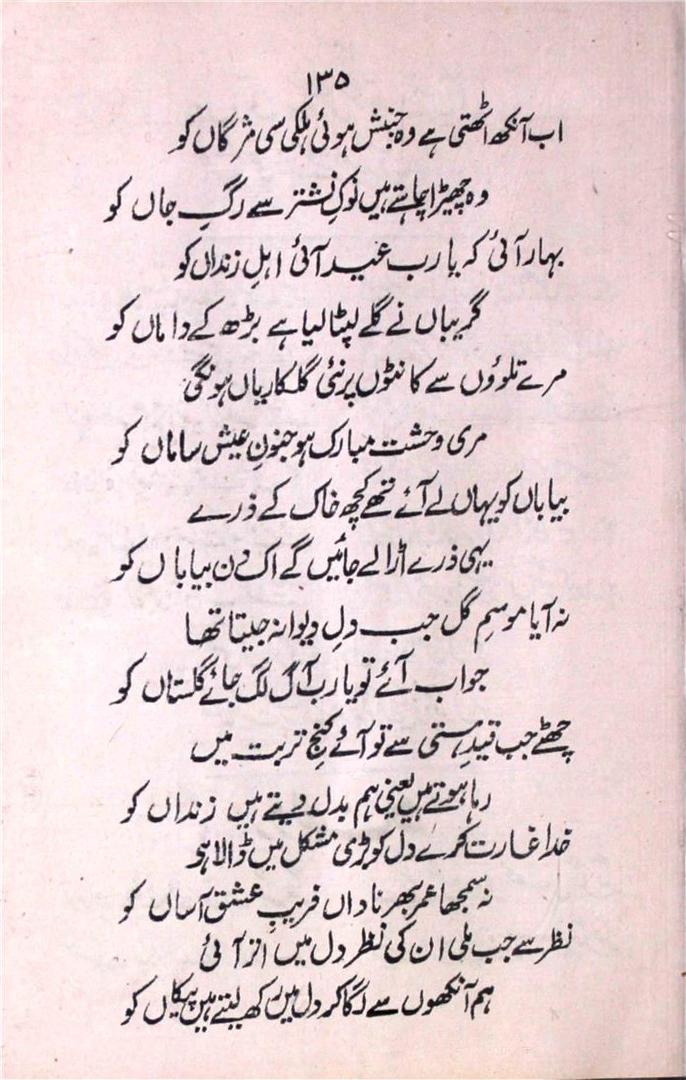 ۱۳۵
اب آنکھ اٹھتی ہے وہ جنبش ہوئی ہلکی سی مژگاں کو
وہ چھیڑا چاہتے ہیں نوکِ نشتر سے رگِ جاں کو
بہار آئی کہ یارب عید آئی اہلِ زنداں کو
گریباں نے گلے لپٹا لیا ہے بڑھ کے داماں کو
مرے تلوؤں سے کانٹوں پر نئی گلکاریاں ہونگی
مری وحشت مبارک ہو جنونِ عیش ساماں کو
بیاباں کو یہاں لے آئے تھے کچھ خاک کے ذرے
یہی ذرے اڑا لے جائیں گے اک دن بیاباں کو
نہ آیا موسمِ گل جب دلِ دیوانہ جیتا تھا
جو اب آئے تو یارب آگ لگ جائے گلستاں کو
چھٹے جب قیدِ ہستی سے تو آئے کنجِ تربت میں
رہا ہوتے ہیں یعنی ہم بدل دیتے ہیں زنداں کو
خدا غارت کرے دل کو بڑی مشکل میں ڈالا ہے
نہ سمجھا عمر بھر ناداں فریبِ عشق آساں کو
نظر سے جب ملی ان کی نظر دل میں اتر آئی
ہم آنکھوں سے لگا کر دل میں رکھ لیتے ہیں پیکاں کو